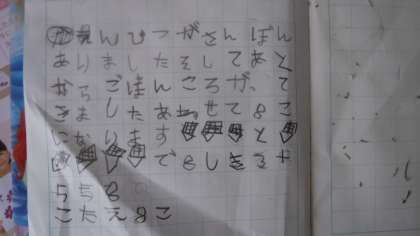 えんぴつがさんぼん
ありましたそしてあと
からごほんころがって
きましたあわせて8こ
になりますと
でしき
こたえ8こ